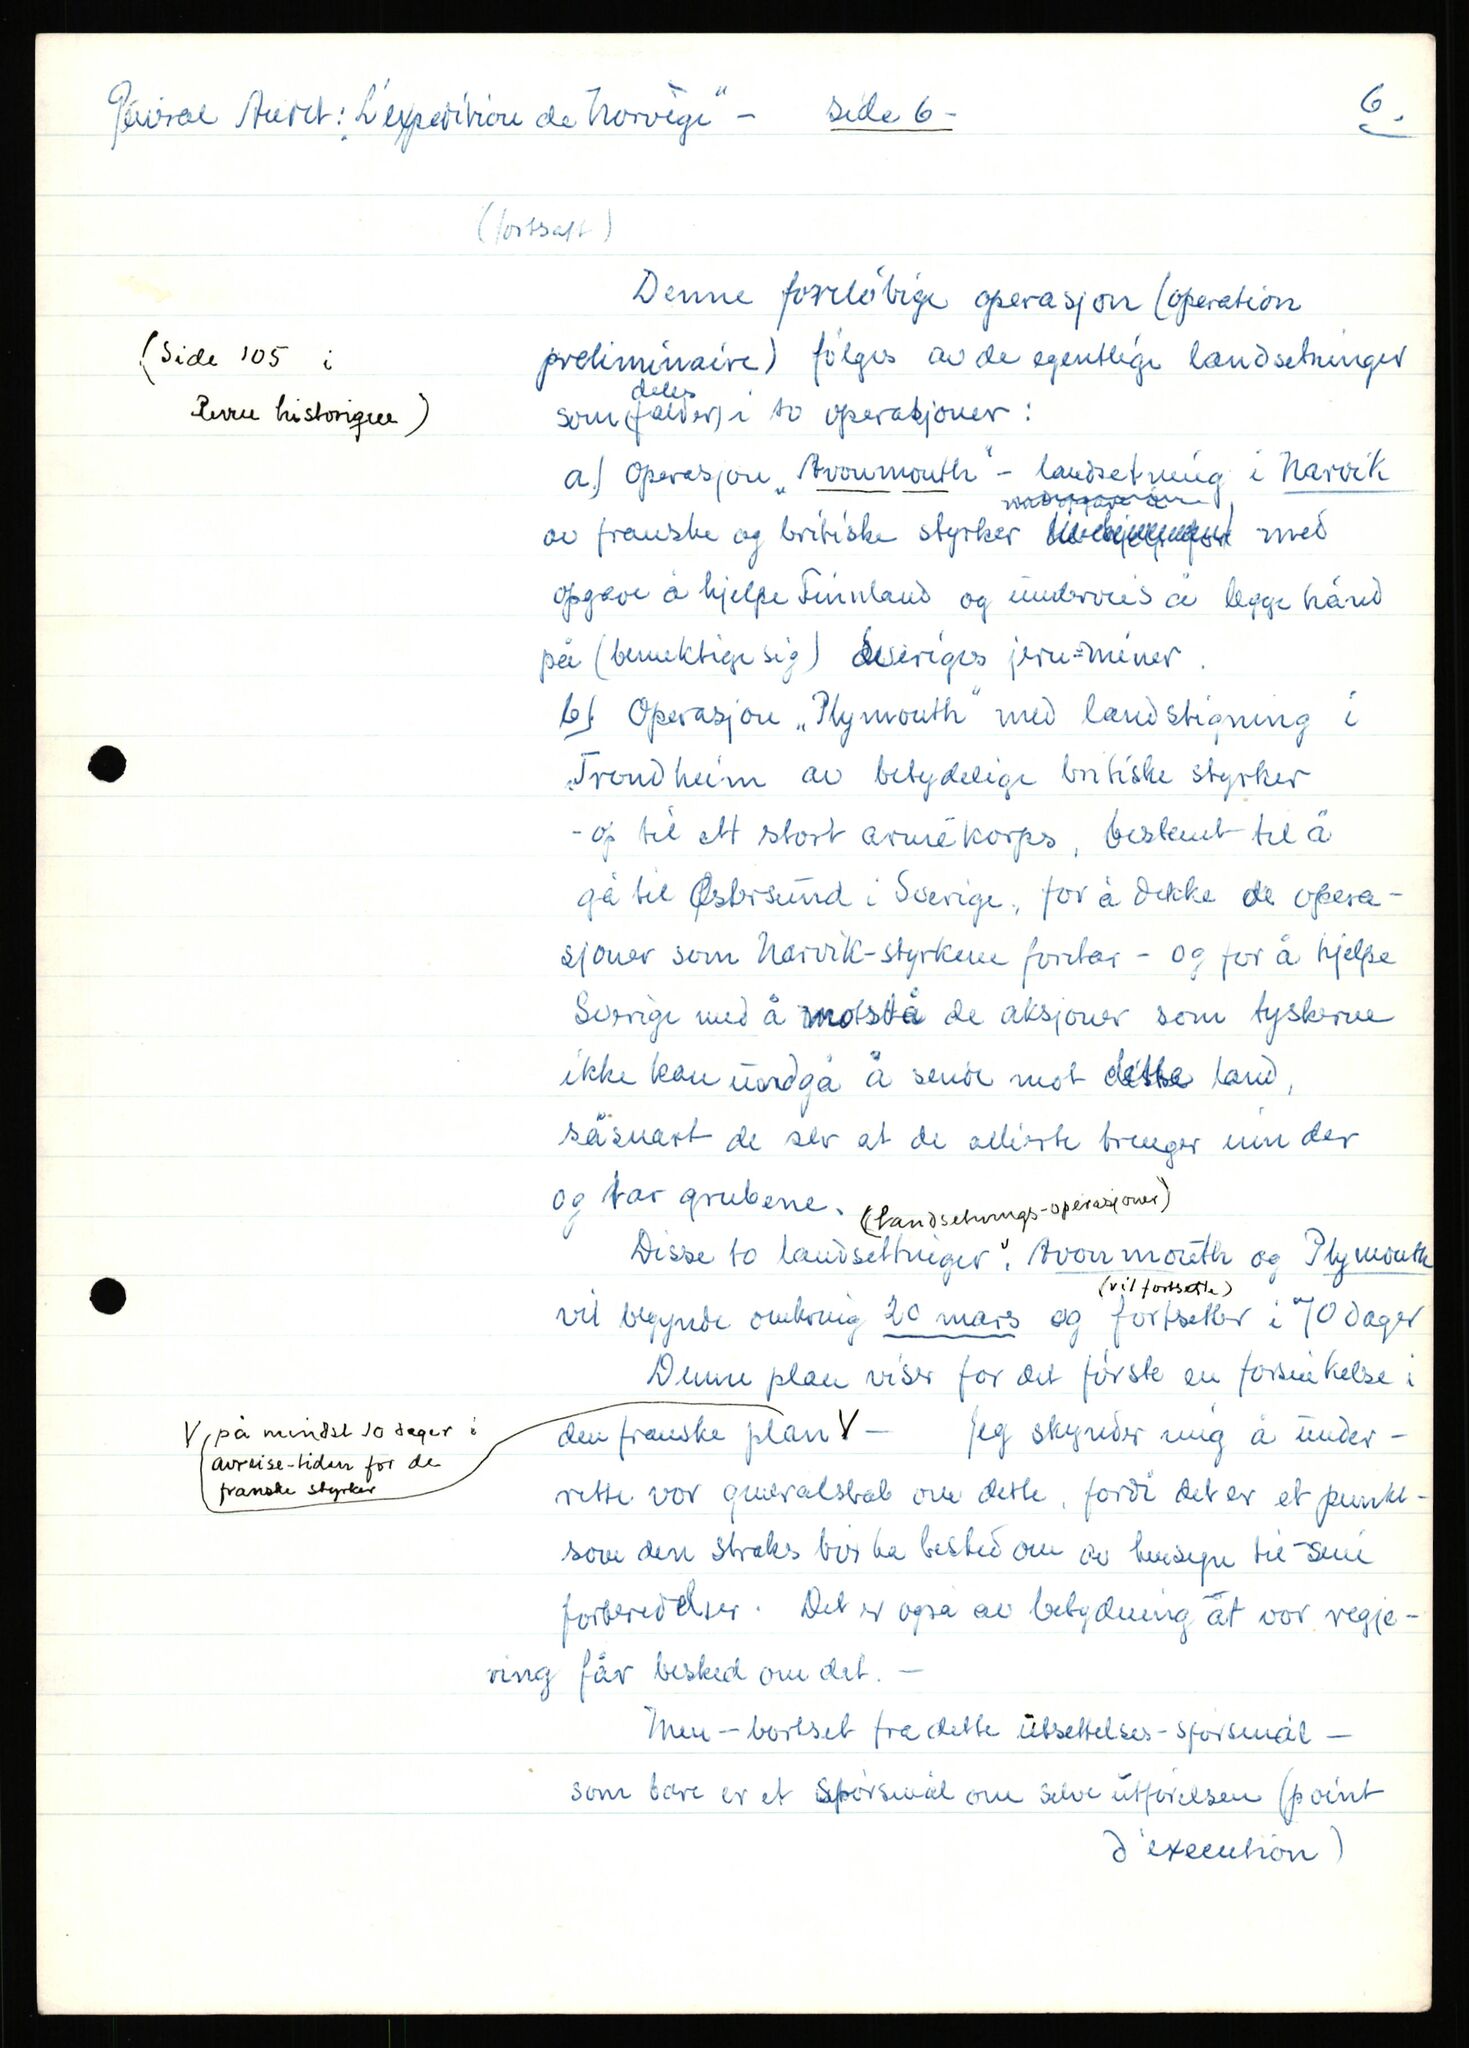 Général Audet: "L'expedition de Norvège" – side 6 – 6.
(fortsatt)
Denne foreløbige operasjon (operation
(Side 105 i
preliminaire) følges av de egentlige landsetninger
Revue historique)
deles
som (falder) i to operasjoner:
a) Operasjon „Avonmouth" – landsetning i Narvik
av franske og britiske styrker med
opgave å hjelpe Finnland og underveis å legge hånd
på (bemektige sig) Sveriges jern=miner.
b) Operasjon „Plymouth" med landstigning i
Trondheim av betydelige britiske styrker
– op til ett stort armékorps, bestemt til å
gå til Østersund i Sverige, for å dekke de opera-
sjoner som Narvik-styrkene foretar – og for å hjelpe
Sverige med å motstå de aksjoner som tyskerne
ikke kan undgå å sende mot dette land,
såsnart de ser at de allierte trenger inn der
og tar grubene.
(landsetnings-operasjoner)
Disse to landsettninger", Avonmouth og Plymouth
(vil fortsette)
vil begynde omkring 20 mars og fortsetter i 70 dager
Denne plan viser for det første en forsinkelse i
V på mindst 10 dager i
avreise-tiden for de
franske styrker
den franske plan V – Jeg skynder mig å under-
rette vor generalstab om dette, fordi det er et punkt
som den straks bør ha besked om av hensyn til sine
forberedelser. Det er også av betydning at vor regje-
ring får besked om det. –
Men – bortset fra dette utsettelses-spørsmål –
som bare er et spørsmål om selve utførelsen (point
d'execution)